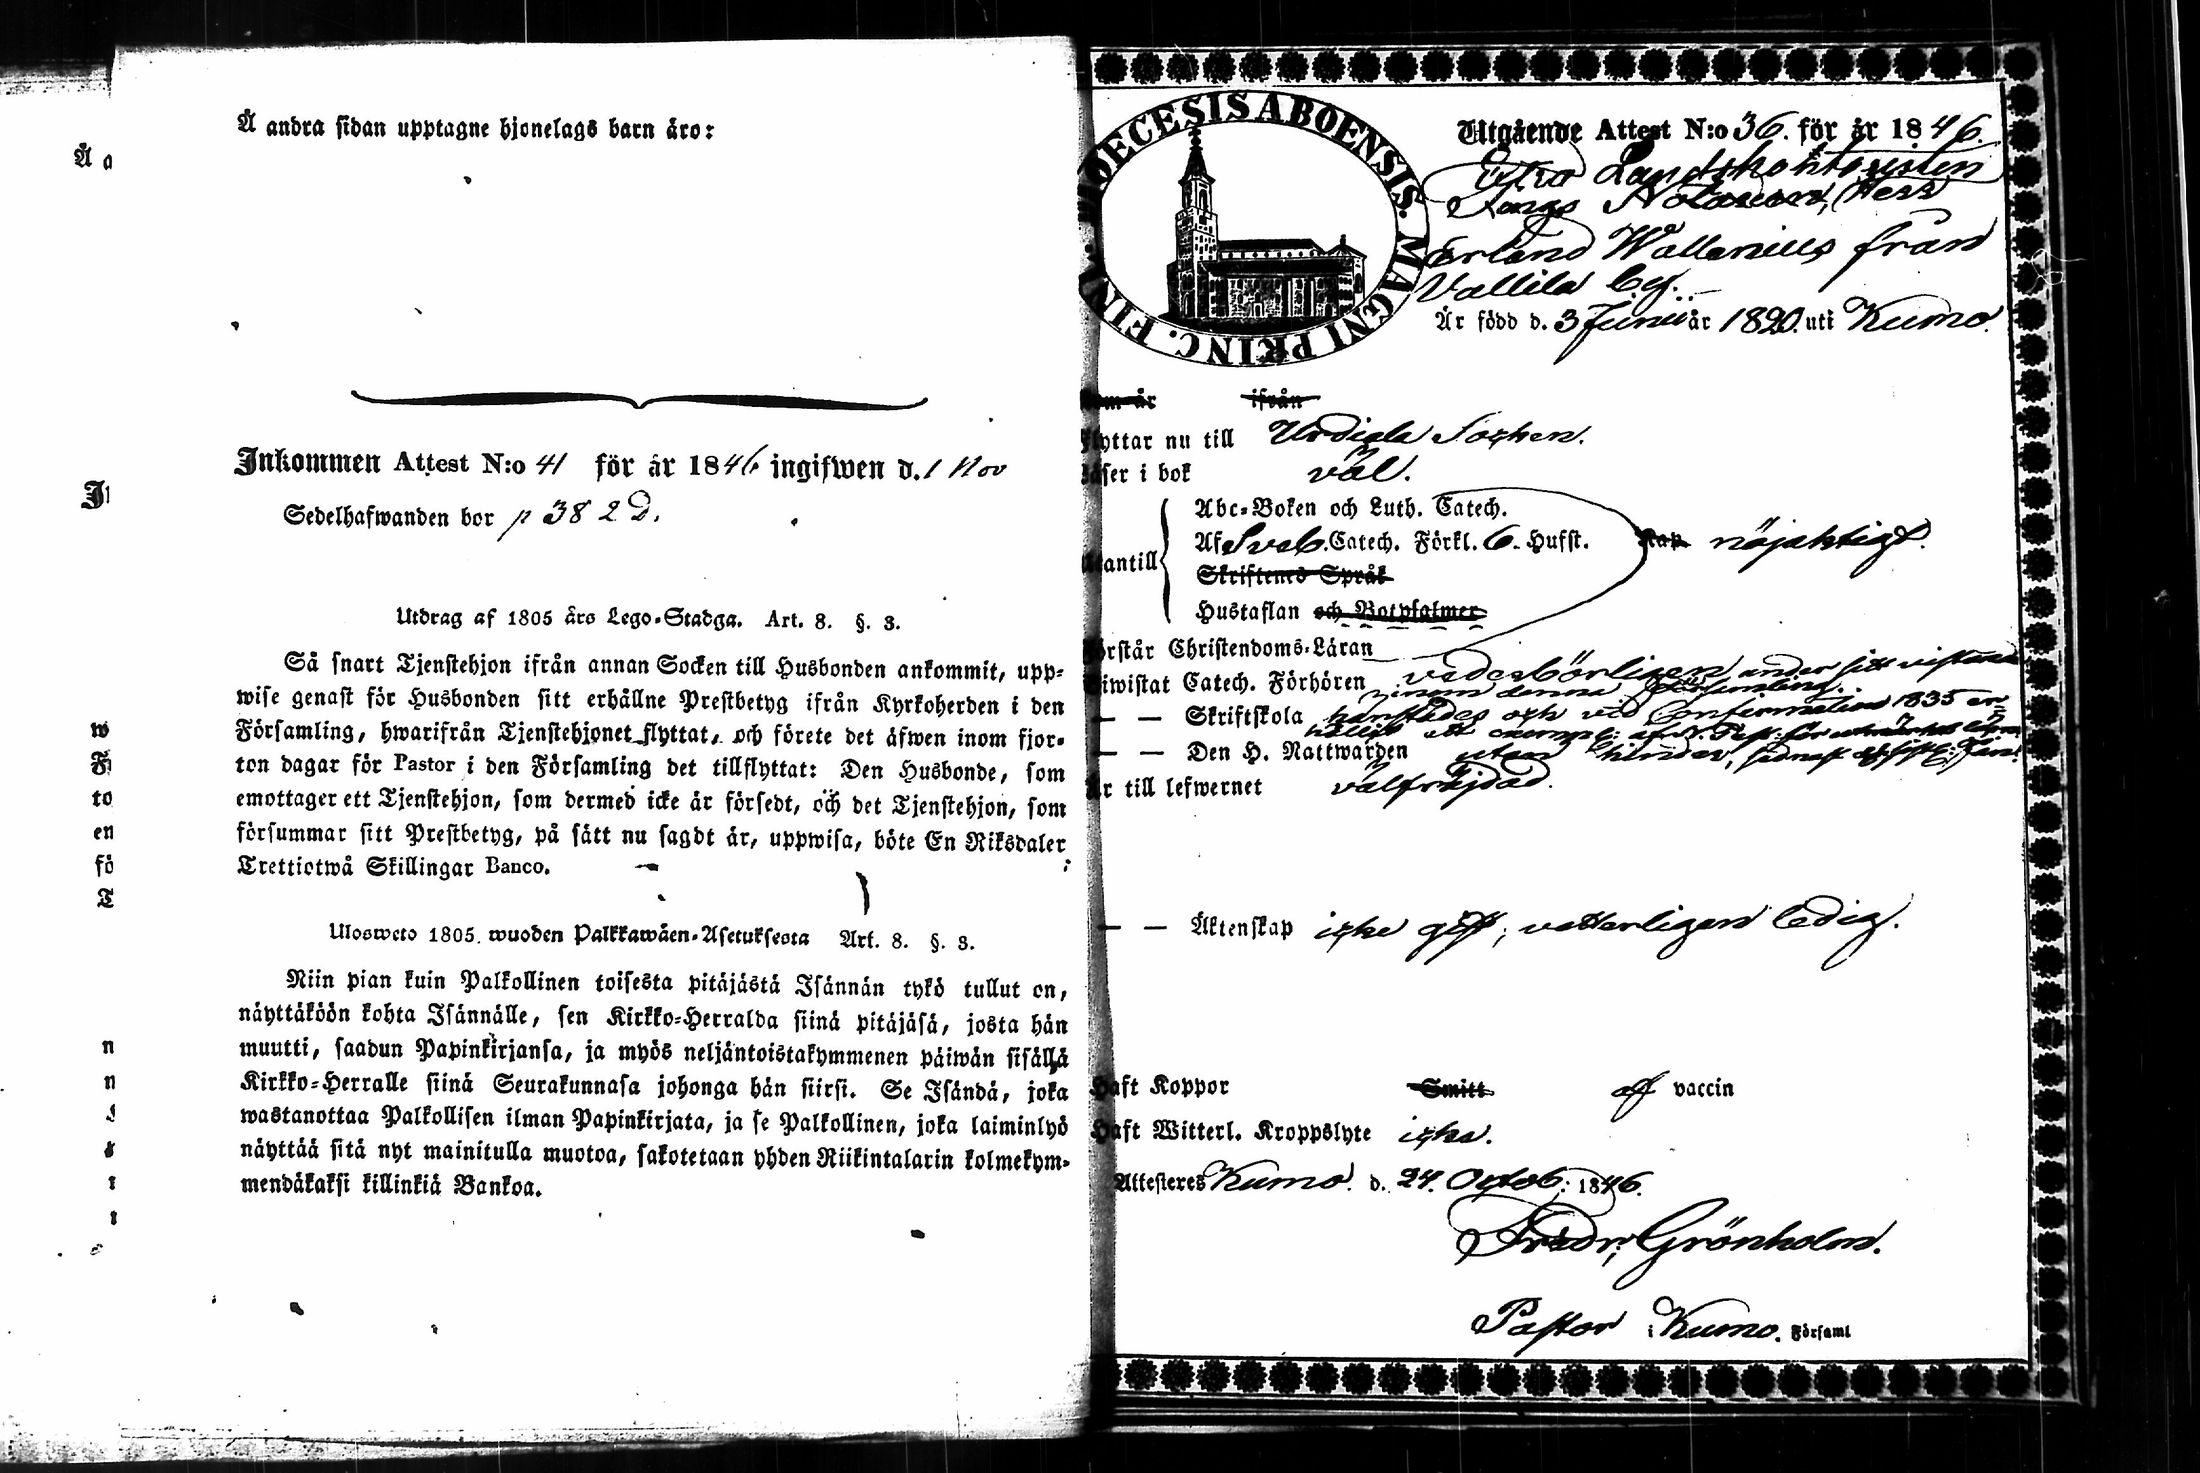 Å andra sidan upptagne hjonelags barn äro:
Inkommen Attest N:o 41 för år 1846 ingifwen d. 1 Nov
Sedelhafwanden bor p 382 D.
Utdrag af 1805 års Lego-Stadga. Art. 8. §. 3.
Så snart Tjenstehjon ifrån annan Socken till Husbonden ankommit, upp-
wise genast för Husbonden sitt erhållne Prestbetyg ifrån Kyrkoherden i den
Församling, hwarifrån Tjenstehjonet flyttat, och förete det äfwen inom fjor-
ton dagar för Pastor i den Församling det tillflyttat: Den Husbonde, som
emottager ett Tjenstehjon, som dermed icke är försedt, och det Tjenstehjon, som
försummar sitt Prestbetyg, på sätt nu sagdt är, uppwisa, böte En Riksdaler
Trettiotwå Skillingar Banco.
Ulosweto 1805. wuoden Palkkawäen-Asetuksesta Art. 8. §. 3.
Niin pian kuin Palkollinen toisesta pitäjästä Isännän tykö tullut on,
näyttäköön kohta Isännälle, sen Kirkko-Herralda siinä pitäjäsä, josta hän
muutti, saadun Papinkirjansa, ja myös neljäntoistakymmenen päiwän sisällä
Kirkko-Herralle siinä Seurakunnasa johonga hän siirsi. Se Isändä, joka
wastanottaa Palkollisen ilman Papinkirjata, ja se Palkollinen, joka laiminlyö
näyttää sitä nyt mainitulla muotoa, sakotetaan yhden Riikintalarin kolmekym-
mendäkaksi killinkiä Bankoa.
DIOECESIS ABOENSIS. MAGNI PRINC. FINL.
Utgående Attest N:o 36. för år 1846.
Extra Landskontoristen
Erland Wallenius från
Vallila
Är född d. 3 Junii år 1820. uti Kumo.
som är ifrån
Flyttar nu till Urdiala Socken.
Läser i bok väl.
Utantill
Abc-Boken och Luth. Catech.
Af Sveb. Catech. Förkl. 6. Hufst. Kap. nöjaktigt.
Skriftenes Språk
Hustaflan och Botpsalmer
Förstår Christendoms-Läran
Biwistat Catech. Förhören vederbörligen under sitt vistande
inom denna församling.
— — Skriftskola härstädes och vid Confirmation 1835 er-
— — Den H. Nattwarden utan hinder, sednast
Är till lefwernet välfräjdad.
— — Äktenskap icke gift; vetterligen ledig.
Haft Koppor Smitt af vaccin
Haft Witterl. Kroppslyte icke.
Attesteres Kumo. d. 24. Octob. 1846.
Fredr. Grönholm.
Pastor i Kumo. Församl